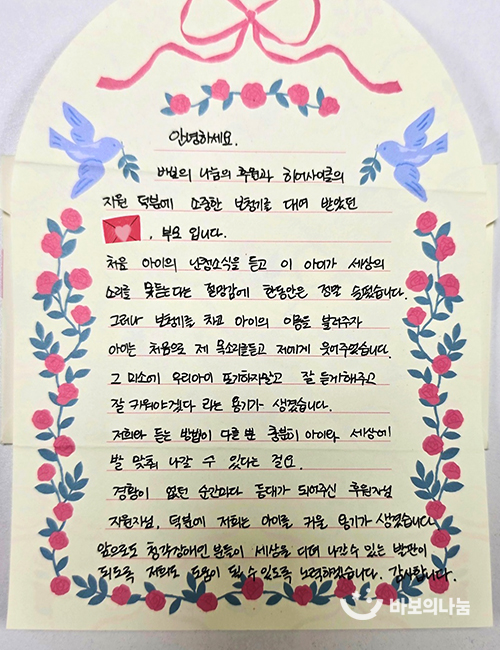 안녕하세요.
바보의 나눔의 후원과 히어사이클의
지원 덕분에 소중한 보청기를 대여 받았던
, 부모 입니다.
처음 아이의 난청소식을 듣고 이 아이가 세상의
소리를 못듣는다는 절망감에 한동안은 정말 슬펐습니다.
그러나 보청기를 차고 아이의 이름을 불러주자
아이는 처음으로 제 목소리를듣고 저에게 웃어주었습니다.
그 미소에 우리아이 포기하지않고 잘 듣게해주고
잘 키워야겠다 라는 용기가 생겼습니다.
저희와 듣는 방법이 다를 뿐 충분히 아이와 세상에
발 맞춰 나갈 수 있다는 걸요.
경험이 없던 순간마다 등대가 되어주신 후원자님
지원자님, 덕분에 저희는 아이를 키울 용기가 생겼습니다.
앞으로도 청각장애인 분들이 세상을 더 나갈수 있는 발판이
되도록 저희도 도움이 될 수 있도록 노력하겠습니다. 감사합니다.
바보의나눔